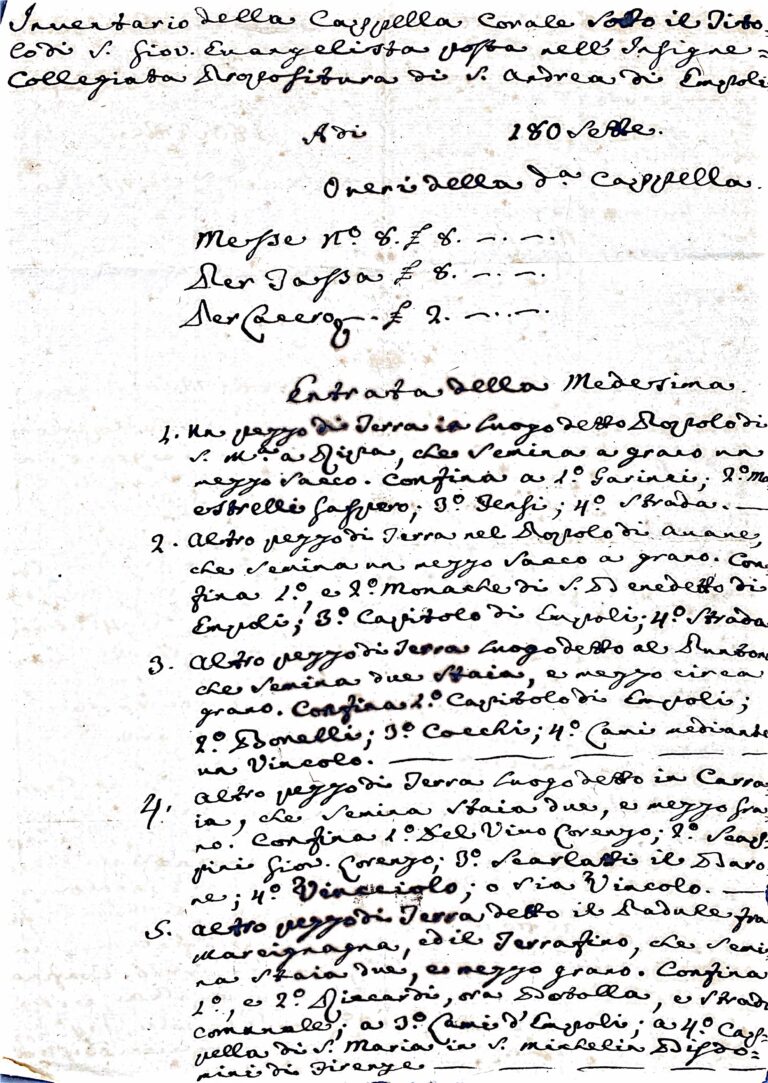 Inventario della Cappella Corale sotto il Tito-
lo di S. Giov. Evangelista posta nell'Insigne=
Collegiata Propositura di S. Andrea di Empoli
A di 180 Sette.
Oneri della d.a Cappella.
Messe N.o 8. £ 8. —. —.
Per Tassa £ 8. —. —.
Per £ 2. —. —.
Entrata della Medesima
1. Un pezzo di Terra in Luogo detto Popolo di
S. M.a a Ripa, che Semina a grano un
mezzo Sacco. Confina a 1.o Garinei; 2.o Ma
estrelli Gaspero; 3.o Tensi; 4.o Strada. —
2. Altro pezzo di Terra nel Popolo di Avane,
che Semina un mezzo Sacco a grano. Con
fina 1.o, e 2.o Monache di S. Benedetto di
Empoli; 3.o Capitolo di Empoli; 4.o Strada
3. Altro pezzo di Terra Luogo detto al Punton
che Semina due Staia, e mezzo circa
grano. Confina 1.o Capitolo di Empoli;
2.o Bonelli; 3.o Cocchi; 4.o Cami mediante
un Vincolo. —
4. Altro pezzo di Terra Luogo detto in Carra
ia, che Semina Staia due, e mezzo gra
no. Confina 1.o Del Vivo Lorenzo; 2.o Scap
pini Giov. Lorenzo; 3.o Scarlatti il Baro
ne; 4.o Vinciolo; o sia Vincolo. —
5. Altro pezzo di Terra detto il Padule fra
Marcignana, ed il Terrafino, che Semi
na Staia due, e mezzo grano. Confina
1.o, e 2.o Riccardi, ora Botolla, e Strad
comunale; a 3.o Cami d'Empoli; a 4.o Cap
pella di S. Maria in S. Michelin Bisdo=
mini di Firenze —